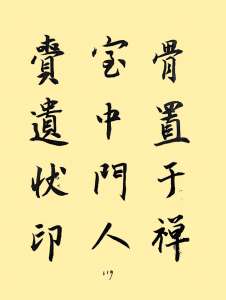 骨置于禅
室中門人
賷遺状印
119